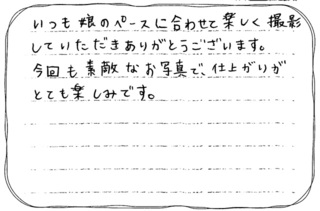 いつも娘のペースに合わせて楽しく撮影
していただきありがとうございます。
今回も素敵なお写真で、仕上がりが
とても楽しみです。